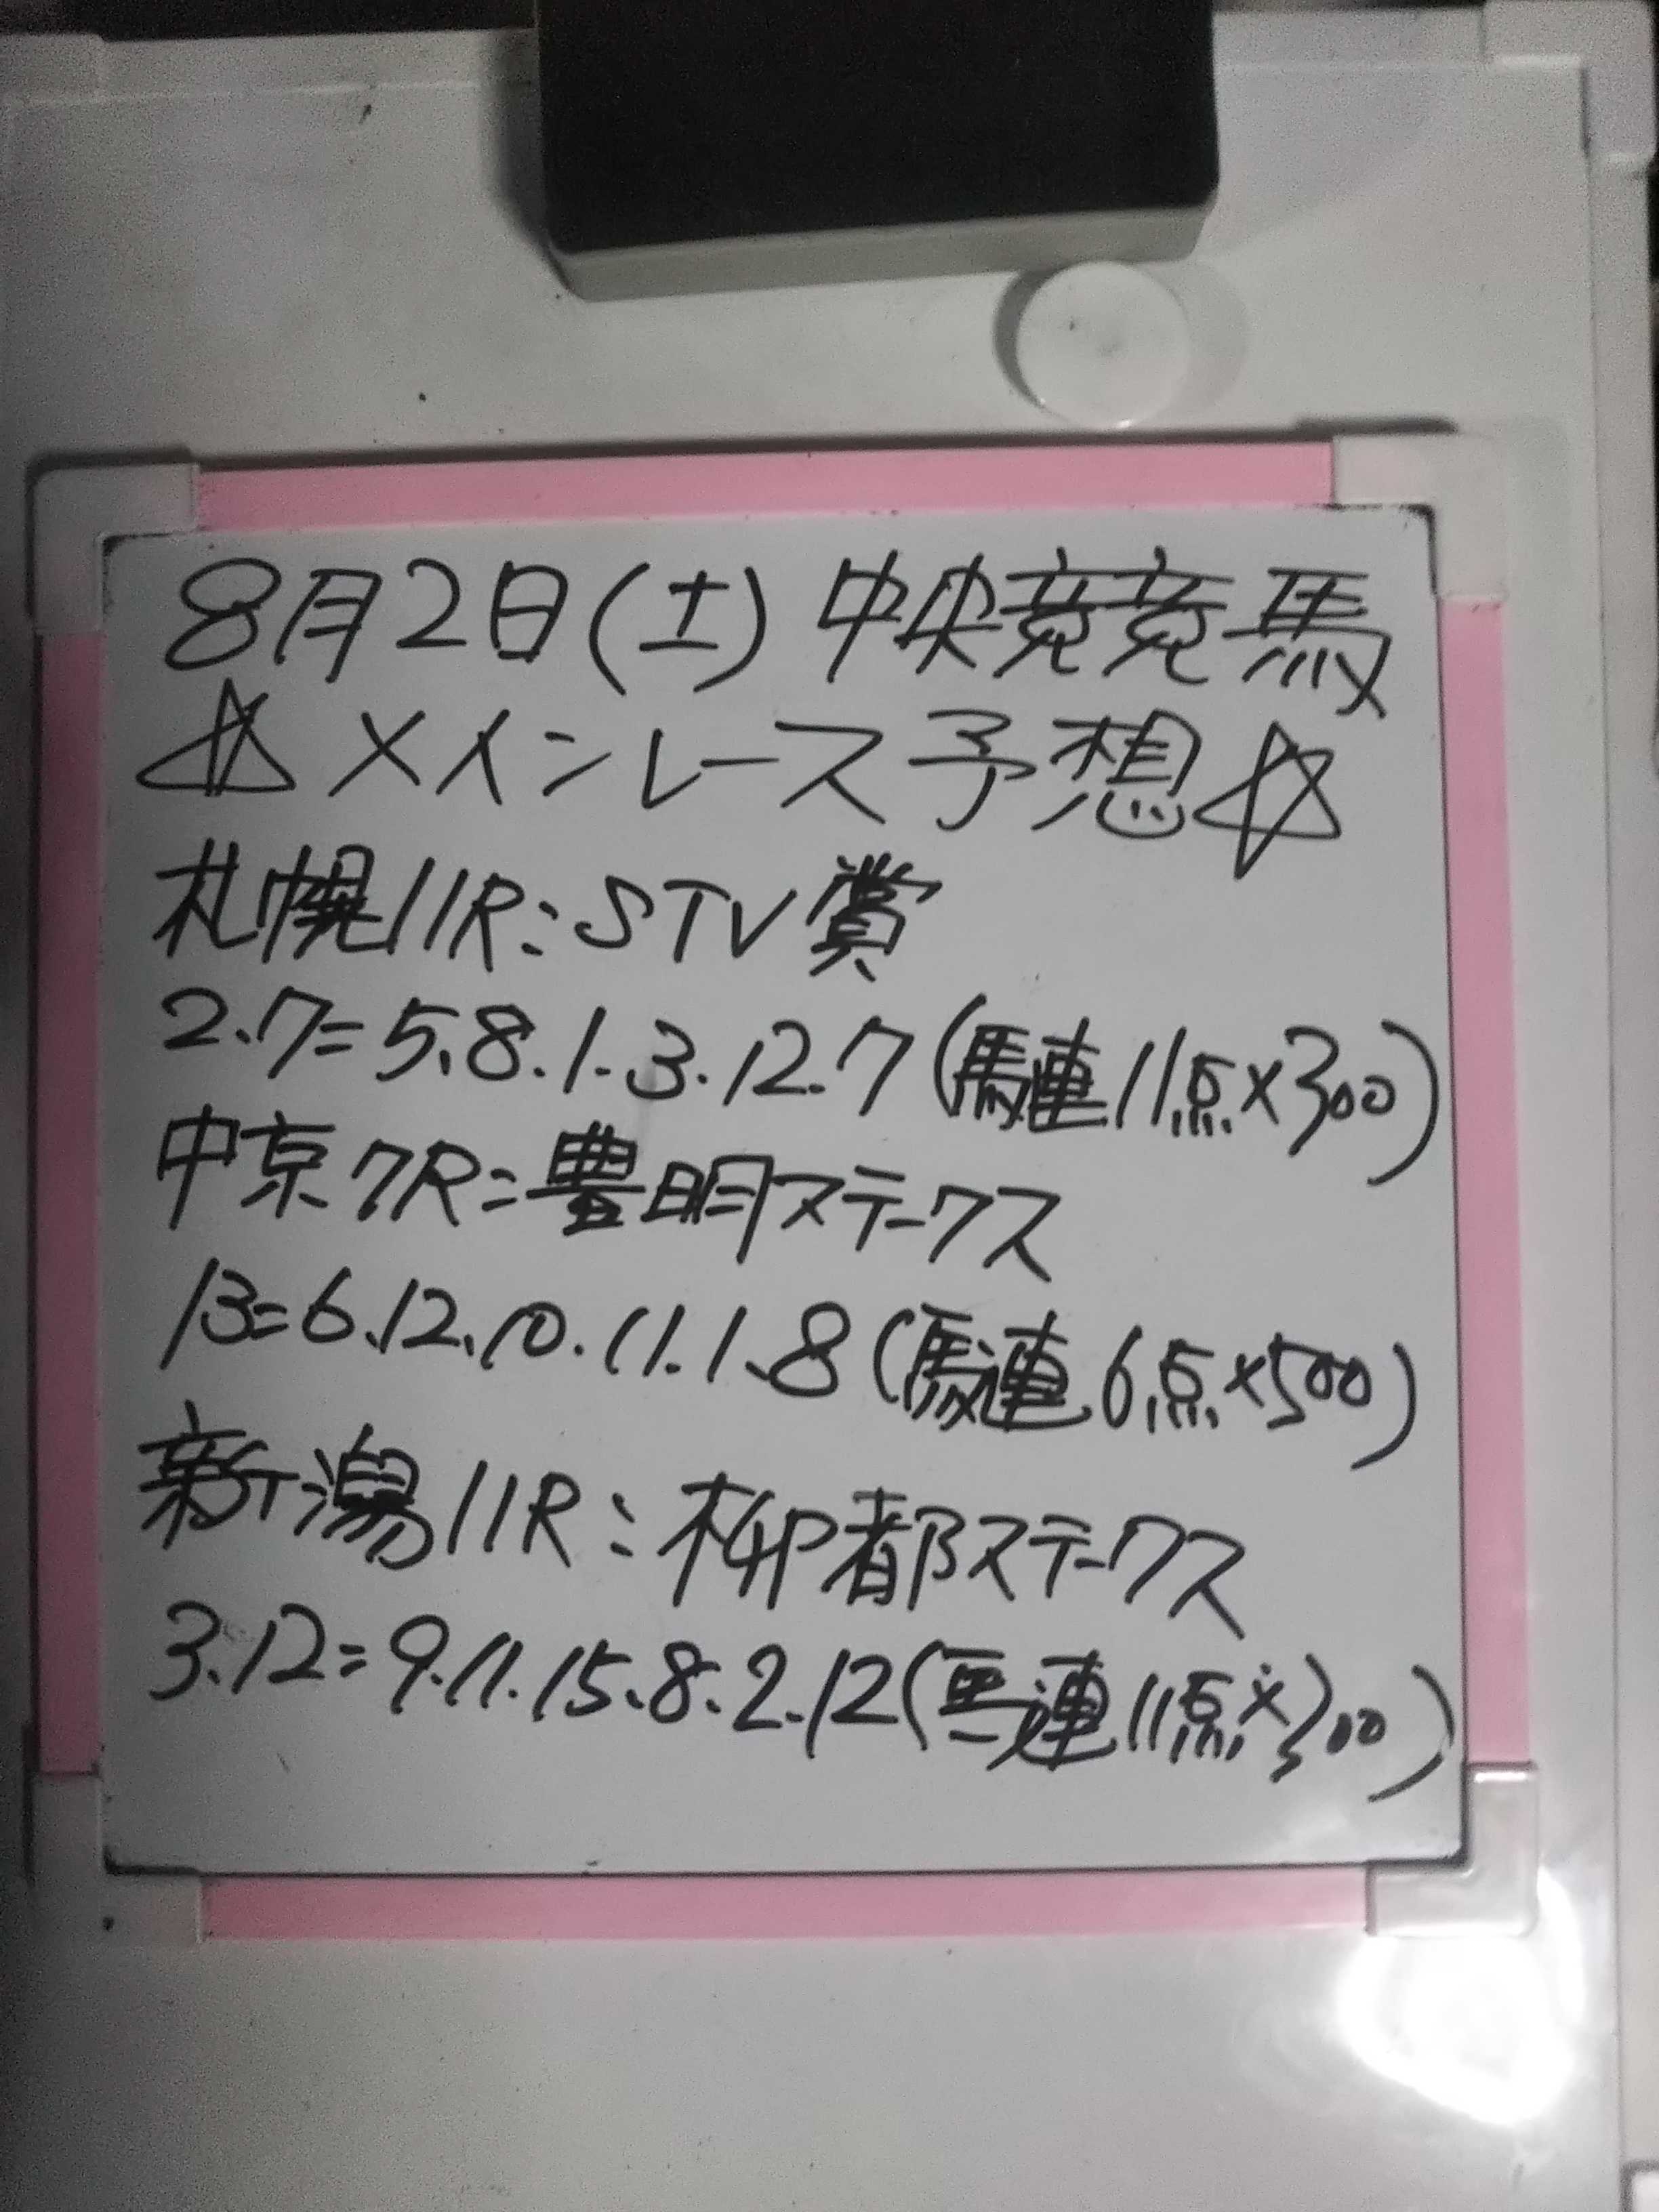 8月2日(土)中央競馬
☆メインレース予想☆
札幌11R:STV賞
2.7=5.8.1.3.12.7(馬連11点×300)
中京7R:豊明ステークス
13=6.12.10.11.1.8(馬連6点×500)
新潟11R:柳都ステークス
3.12=9.11.15.8.2.12(馬連11点×300)